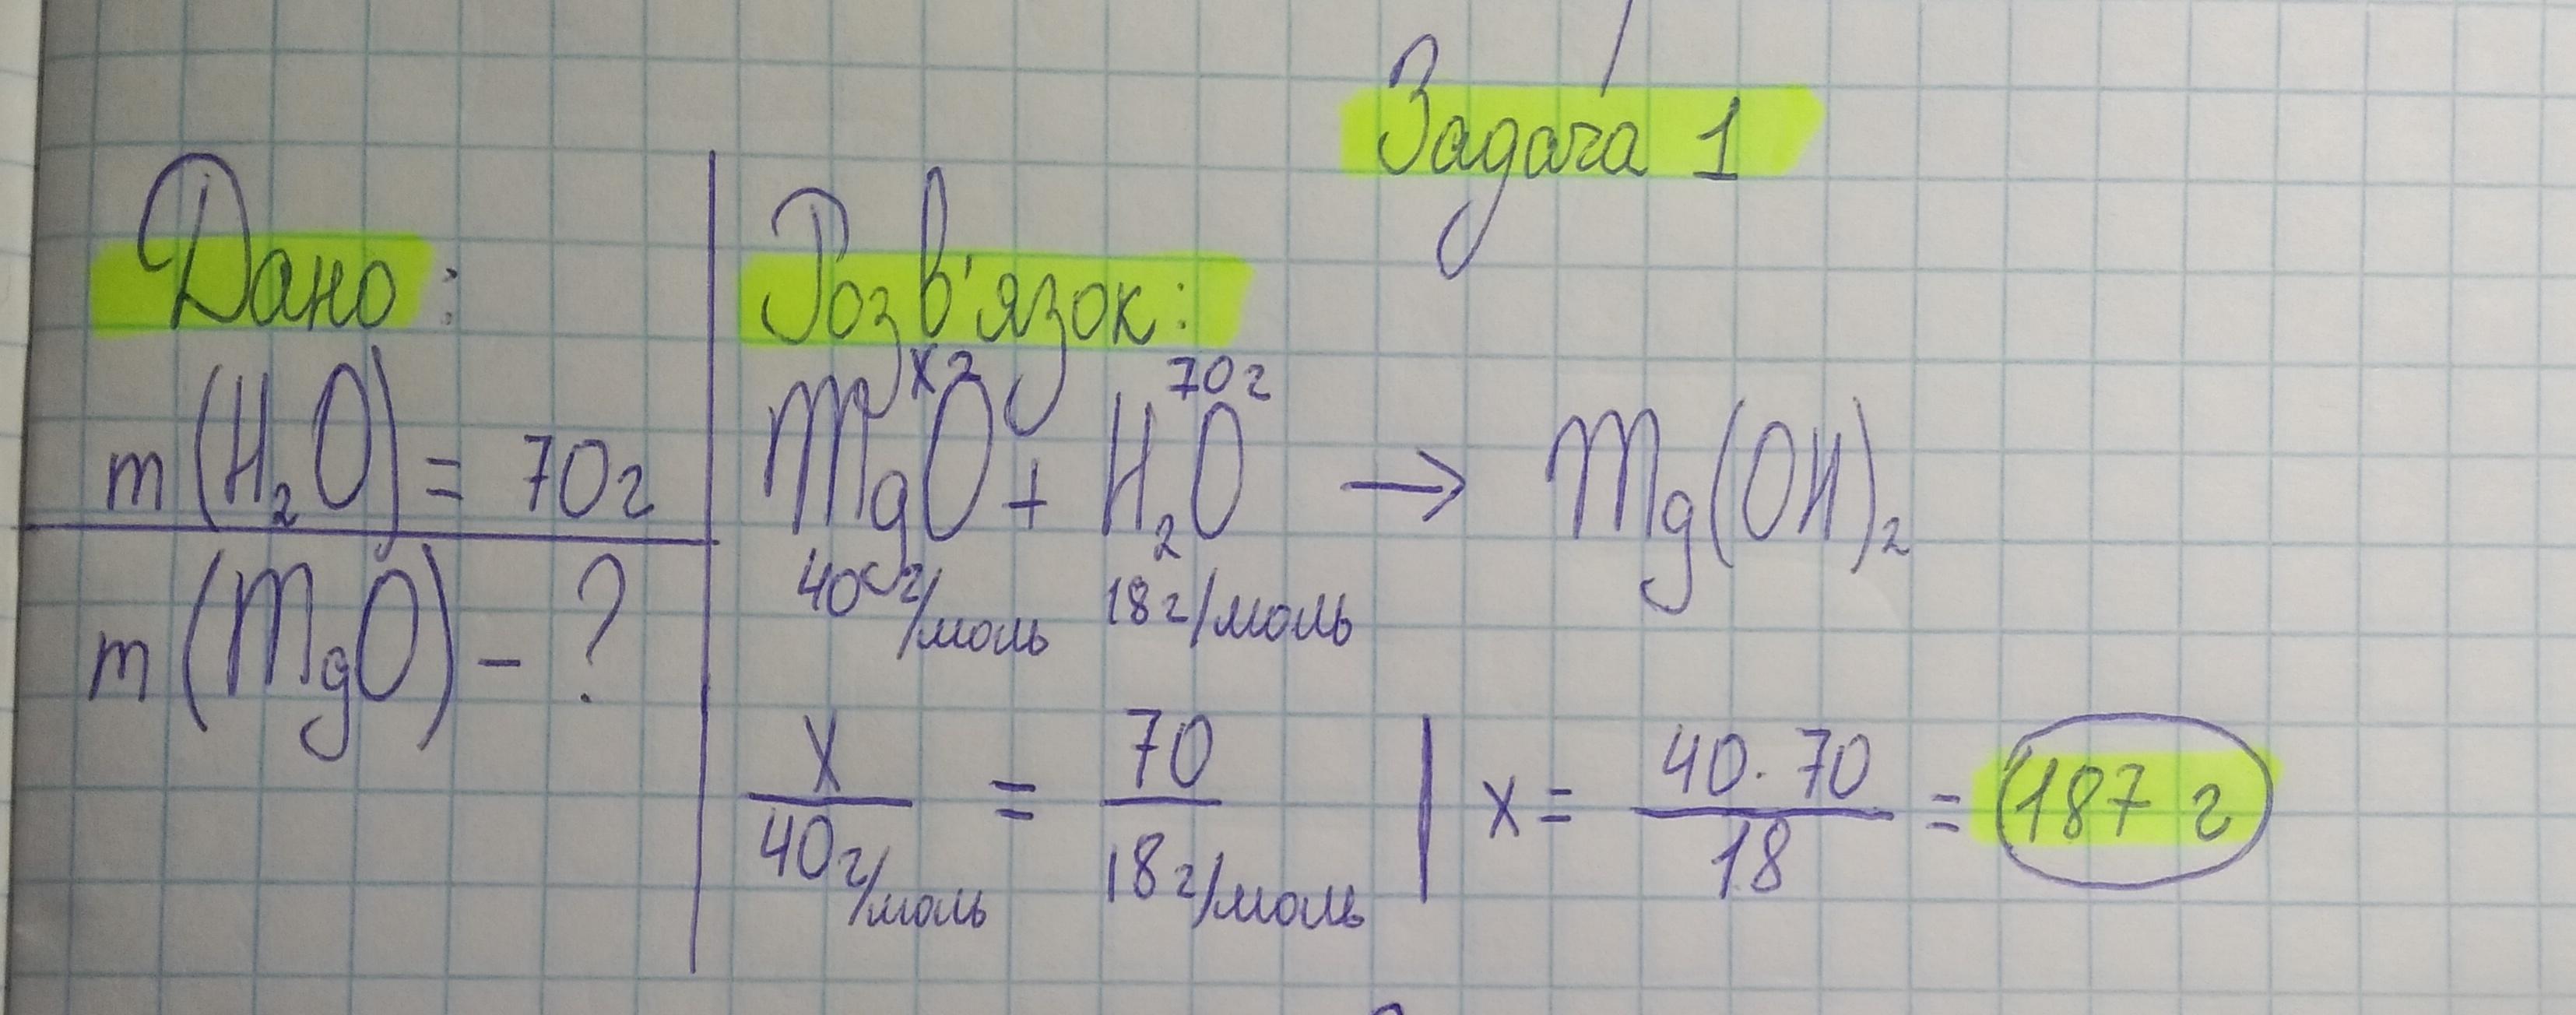 Задача 1
Дано:
m(H₂O) = 70г
m(MgO) - ?
Розв'язок:
xг 70г
MgO + H₂O → Mg(OH)₂
40г/моль 18г/моль
x/40г/моль = 70/18г/моль | x = 40·70/18 = 187 г